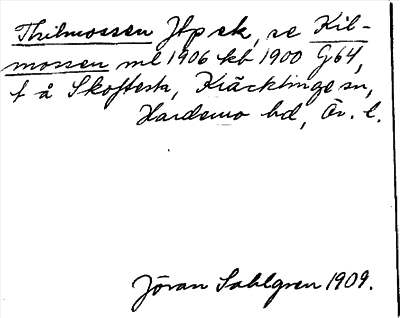 Thilmossen Jtp ek, se Kil-
mossen ml 1906 kb 1900 G64,
f å Skoftesta, Kräcklinge sn,
Hardemo hd, Ör. l.
Jöran Sahlgren 1909.